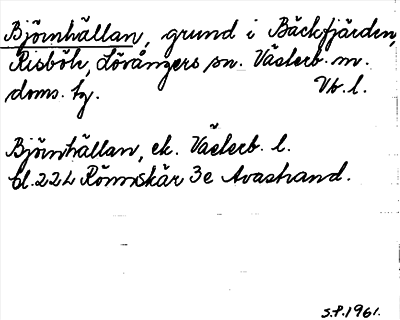 Björnhällan, grund i Bäckfjärden,
Risböle, Lövångers sn. Västerb. m.
doms. tg. Vb. l.
Björnhällan, ek. Västerb. l.
bl. 22L Rönnskär 3e Avastrand.
S.P. 1961.